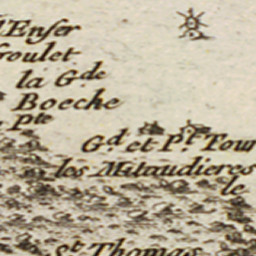 l'Enfer
la G.de
Boeche
P.te
G.d et P.t Tour
les Mitaudieres
le
St Thomas